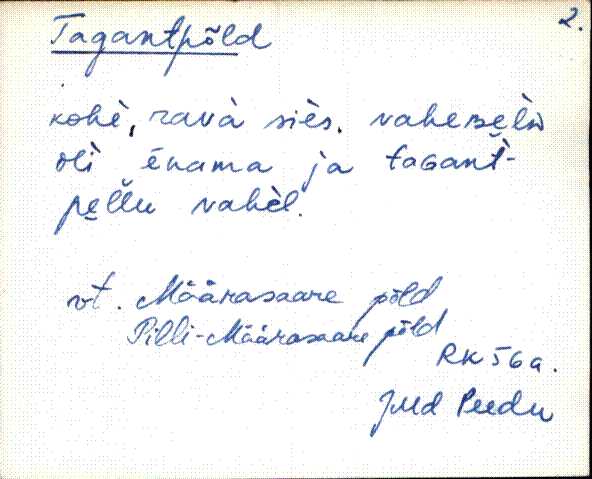 2.
Tagantpõld
kohè, ravà siès. vaheʙèlù
oli ēnama ja taGant̆-
pel̆lu vahèl.
vt. Määrasaare põld
Pilli-Määrasaare põld
RK 56a.
Jud Peedu